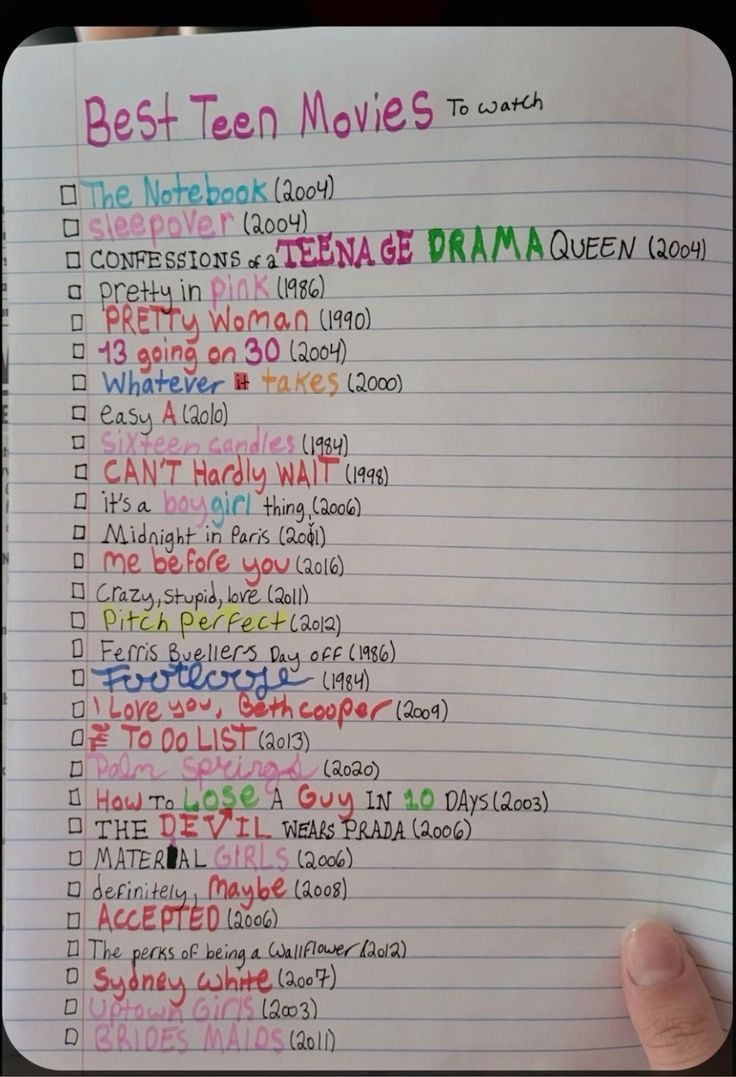 Best Teen Movies To watch
The Notebook (2004)
sleepover (2004)
CONFESSIONS of a TEENAGE DRAMA QUEEN (2004)
pretty in pink (1986)
PRETTy Woman (1990)
13 going on 30 (2004)
Whatever it takes (2000)
easy A (2010)
Sixteen candles (1984)
CAN'T Hardly WAIT (1998)
it's a boy girl thing, (2006)
Midnight in Paris (2011)
me before you (2016)
Crazy, Stupid, love (2011)
Pitch perfect (2012)
Ferris Buellers Day off (1986)
Footloose (1984)
I Love you, Beth cooper (2009)
TO DO LIST (2013)
Palm Springs (2020)
How To LOSE A Guy IN 10 DAYS (2003)
THE DEVIL WEARS PRADA (2006)
MATERIAL GIRLS (2006)
definitely, Maybe (2008)
ACCEPTED (2006)
The perks of being a Wallflower (2012)
Sydney White (2007)
Uptown Girls (2003)
BRIDES MAIDS (2011)